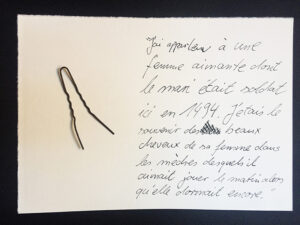 "J'ai appartenu à une
femme aimante dont
le mari était soldat
ici en 1494. J'étais le
souvenir des beaux
cheveux de sa femme dans
les mèches desquels il
aimait jouer le matin alors
qu'elle dormait encore."